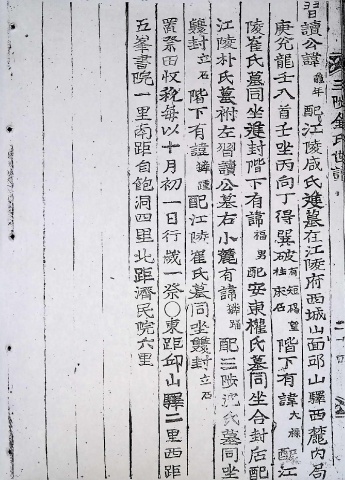 習讀公諱龜年配江陵咸氏雙墓在江陵府西城山面邱山驛西麓內局
庚兌龍壬入首壬坐丙向丁得巽破有短碣望柱床石階下有諱大 配江
陵崔氏墓同坐雙封階下有諱福男配安東權氏墓同坐合封后配
江陵朴氏墓祔左習讀公墓右小麓有諱 配三陟沈氏墓同坐
雙封立石階下有諱 配江陵崔氏墓同坐雙封立石
置祭田收稅每以十月初一日行歲一祭○東距邱山驛二里西距
五峯書院一里南距自飽洞四里北距濟民院六里
三陟金氏世譜
二十四